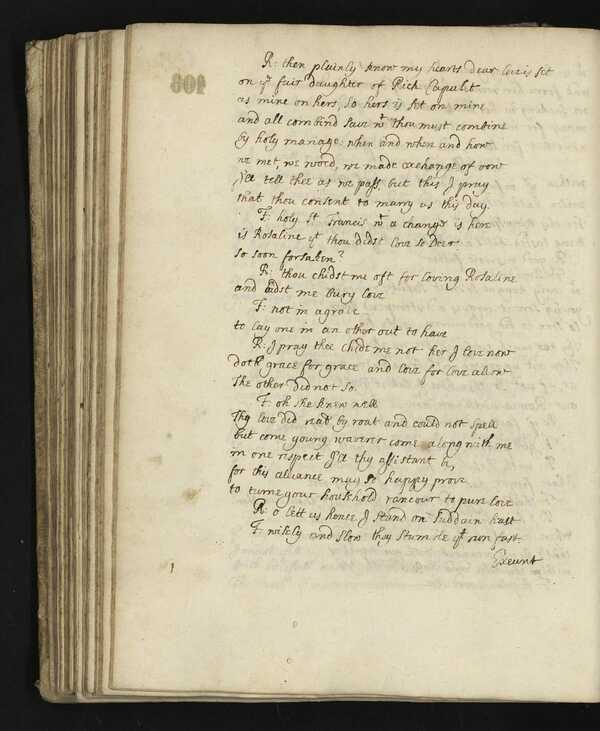 R: then plainly know my hearts dear love is set
on yᵉ fair daughter of Rich Capulet
as mine on hers, so hers is set on mine
and all combind save wᵗ thou must combine
by holy manage: when and when and how
we met, we wooed, we made exchange of vow
I'le tell thee as we pass, but this I pray
that thou consent to marry us this day.
F: holy Sᵗ Francis wᵗ a change is here
is Rosaline yᵗ thou didst love so Dear
so soon forsaken?
R: thou chidst me oft for loving Rosaline
and bidst me bury love
F: not in a grave
to lay one in an other out to have
R: I pray thee chide me not her I love now
doth grace for grace and love for love alow
the other did not so.
F: oh she knew well
Thy love did read by roat and could not spell
but come young waverer come along with me
in one respect I'le thy assistant be,
for this aliance may so happy prove
to turne your houshold rancour to pure love
R: o lett us hence I stand on suddain hast
F: wisely and slow they stumble yᵗ run fast.
Exeunt